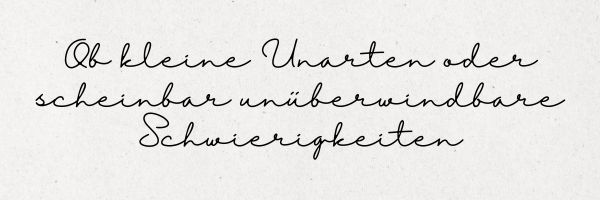 Ob kleine Unarten oder
scheinbar unüberwindbare
Schwierigkeiten